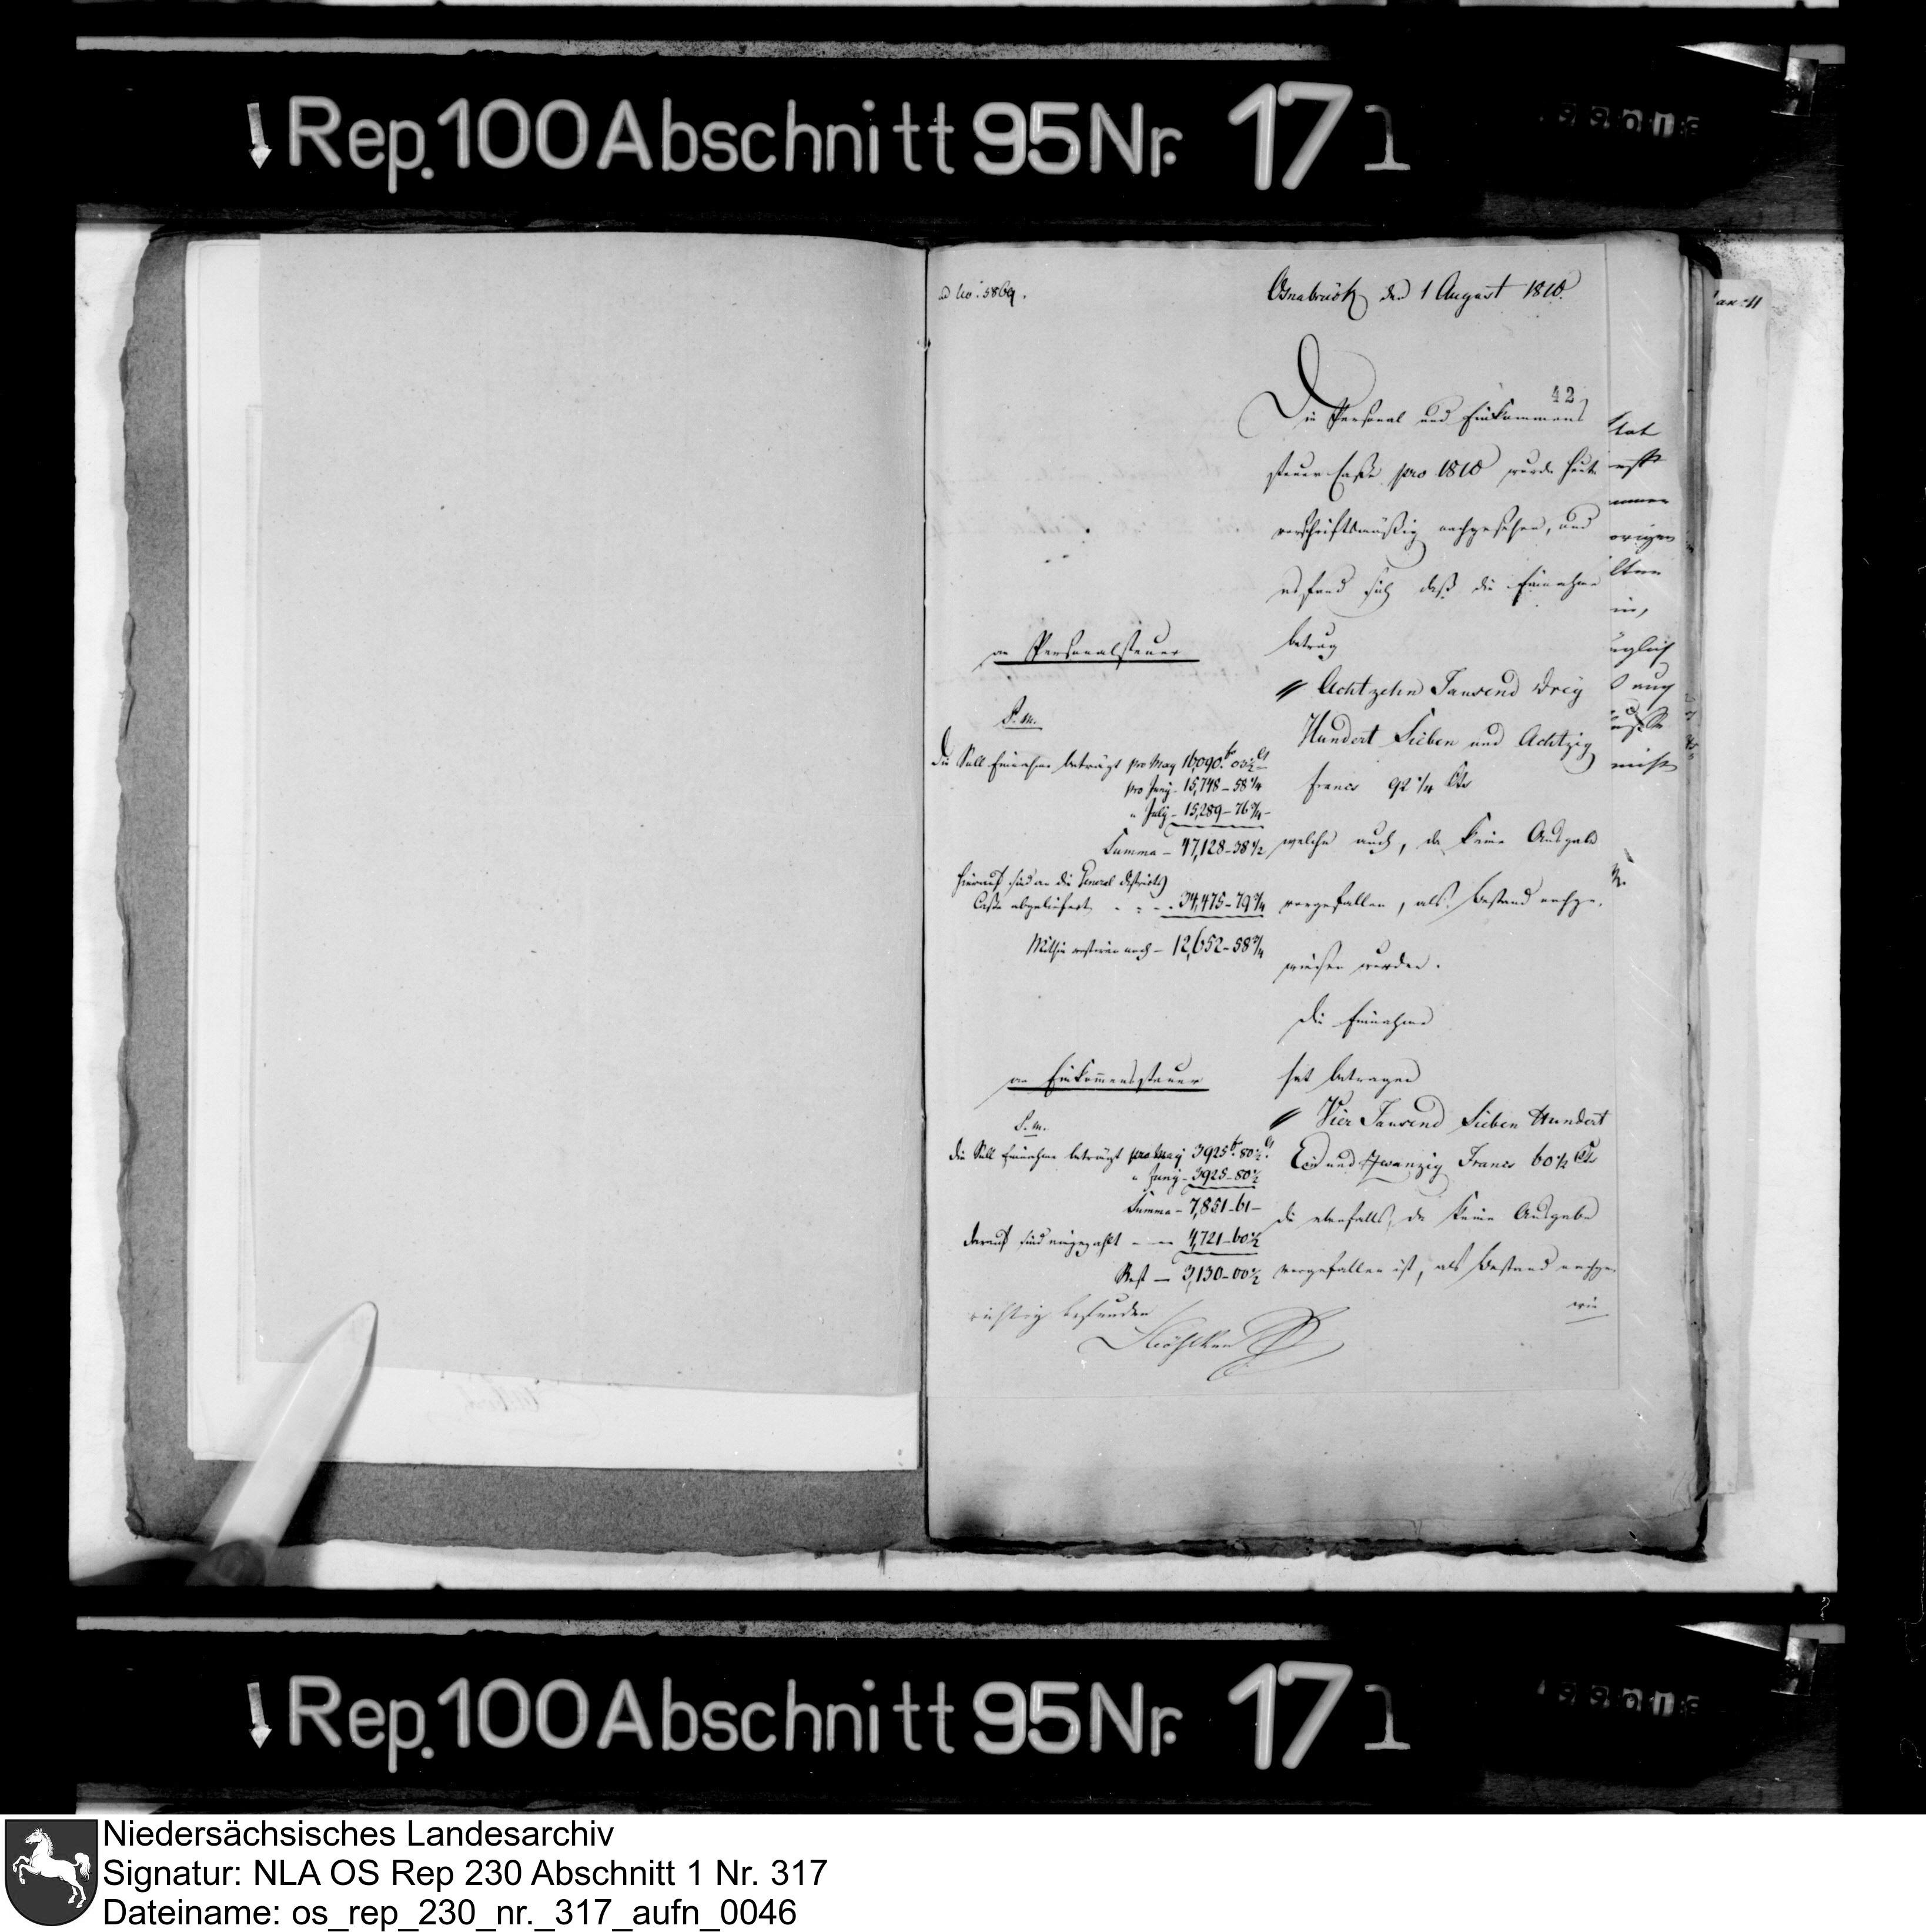 ↓ Rep. 100 Abschnitt 95 Nr. 171
ad No: 5869.
Osnabrück den 1 August 1810.
42
Die Personal und Einkommens
steuer Caße pro 1810 wurde heute
vorschriftsmäßig nachgesehen, und
es fand sich daß die Einnahme
an Personalsteuer
betrug
" Achtzehn Tausend Drey
Hundert Sieben und Achtzig
francs 92 1/4 Cts
welche auch, da keine Ausgabe
vorgefallen, als Bestand nachge-
wiesen wurden.
P. m.
die Soll Einnahme beträgt pro May 16,090 fr 03 1/2 Ct
pro Juny - 15,748 - 58 1/4
" July - 15,289 - 76 3/4 -
Summa - 47,128 - 38 1/2
hierauf sind an die General Districts
Caße abgeliefert - - - 34,475 - 79 3/4
Mithin restiren noch - 12,652 - 58 3/4
Die Einnahme
an Einkomensteuer
hat betragen
" Vier Tausend Sieben Hundert
Ein und Zwanzig Francs 60 1/2 Cts
die ebenfalls, da keine Ausgabe
vorgefallen ist, als Bestand nachge-
wie
P. m.
die Soll Einnahme beträgt pro May 3925 fr. 80 1/2 Ct
" Juny - 3925 - 80 1/2
Summa - 7,851 - 61 -
darauf sind eingezahlt - - 4,721 - 60 1/2
Rest - 3,130 - 00 1/2
richtig befunden
↓ Rep. 100 Abschnitt 95 Nr. 171
Niedersächsisches Landesarchiv
Signatur: NLA OS Rep 230 Abschnitt 1 Nr. 317
Dateiname: os_rep_230_nr._317_aufn_0046